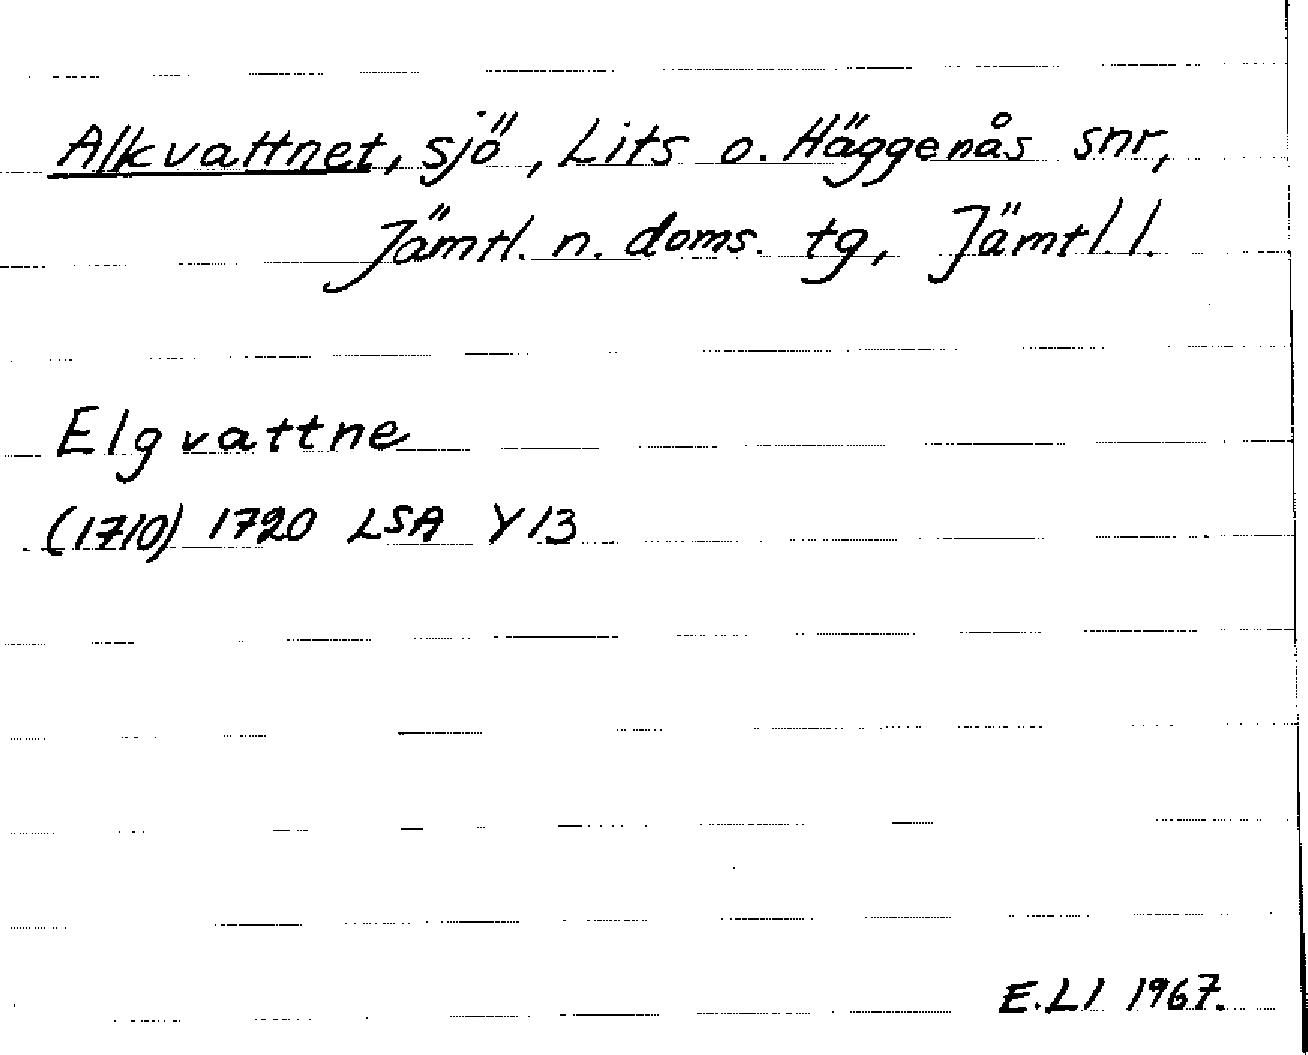 Alkvattnet, sjö, Lits o. Häggenås snr,
Jämtl. n. doms. tg, Jämtl. l.
Elgvattne
(1710) 1720 LSA Y13
E.Ll 1967.